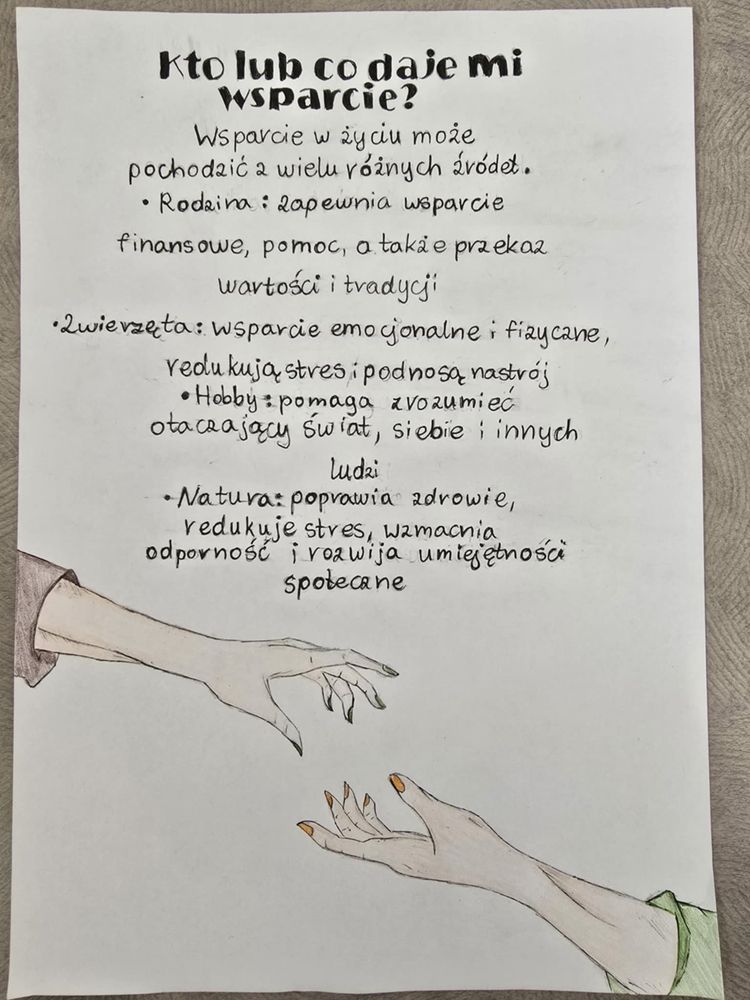 Kto lub co daje mi
wsparcie?
Wsparcie w życiu może
pochodzić z wielu różnych źródeł.
• Rodzina: zapewnia wsparcie
finansowe, pomoc, a także przekaz
wartości i tradycji
• Zwierzęta: wsparcie emocjonalne i fizyczne,
redukują stres i podnosą nastrój
• Hobby: pomaga zrozumieć
otaczający świat, siebie i innych
ludzi
• Natura: poprawia zdrowie,
redukuje stres, wzmacnia
odporność i rozwija umiejętności
społeczne